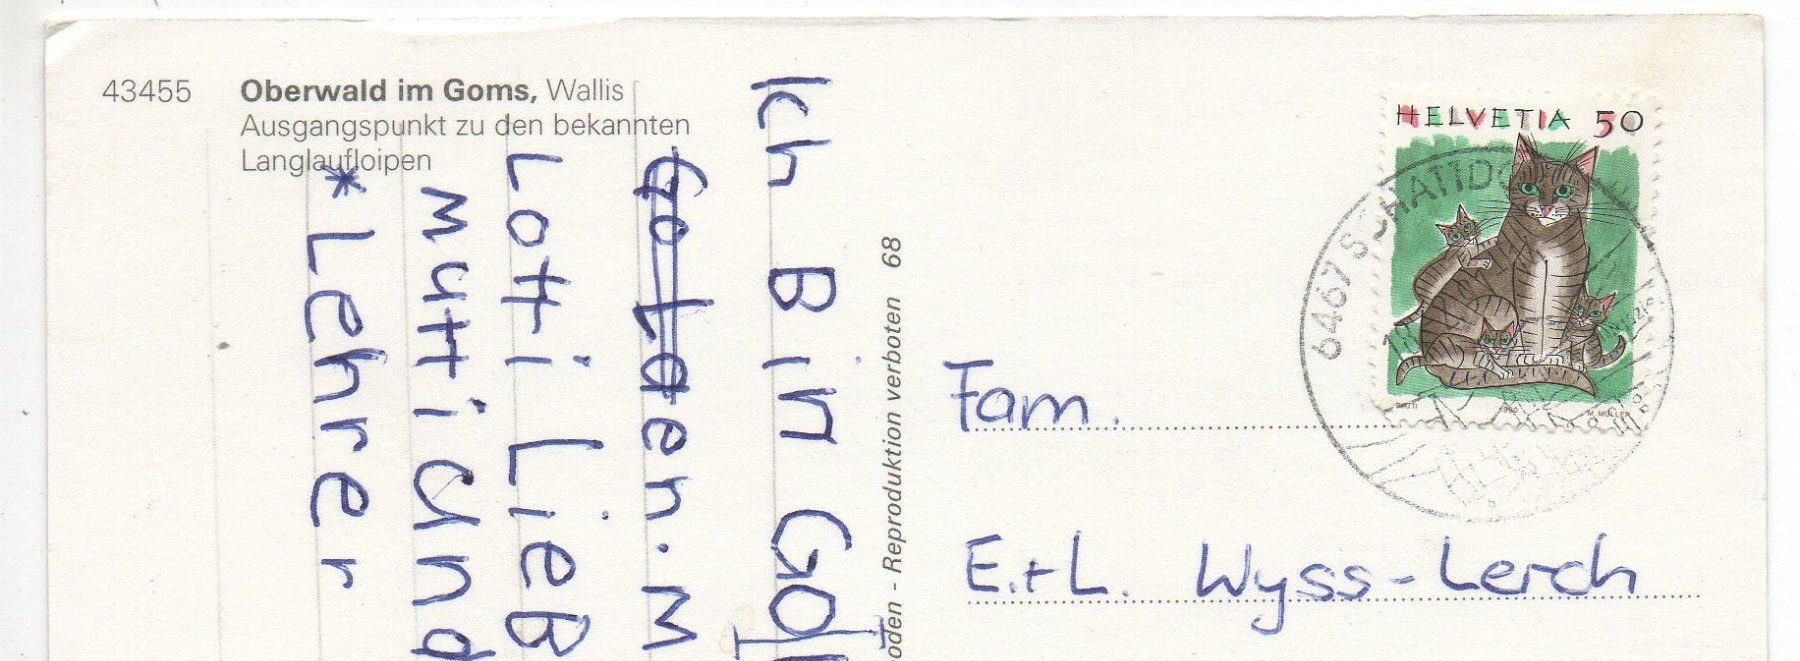 43455
Oberwald im Goms, Wallis
Ausgangspunkt zu den bekannten
Langlaufloipen
Ich Bin Gol
en. M
Lotti LieB
mutti und
*Lehrer
oden - Reproduktion verboten 68
HELVETIA 50
1990
M. MÜLLER
6467 SCHATTDO
Fam.
E.+L. Wyss-Lerch